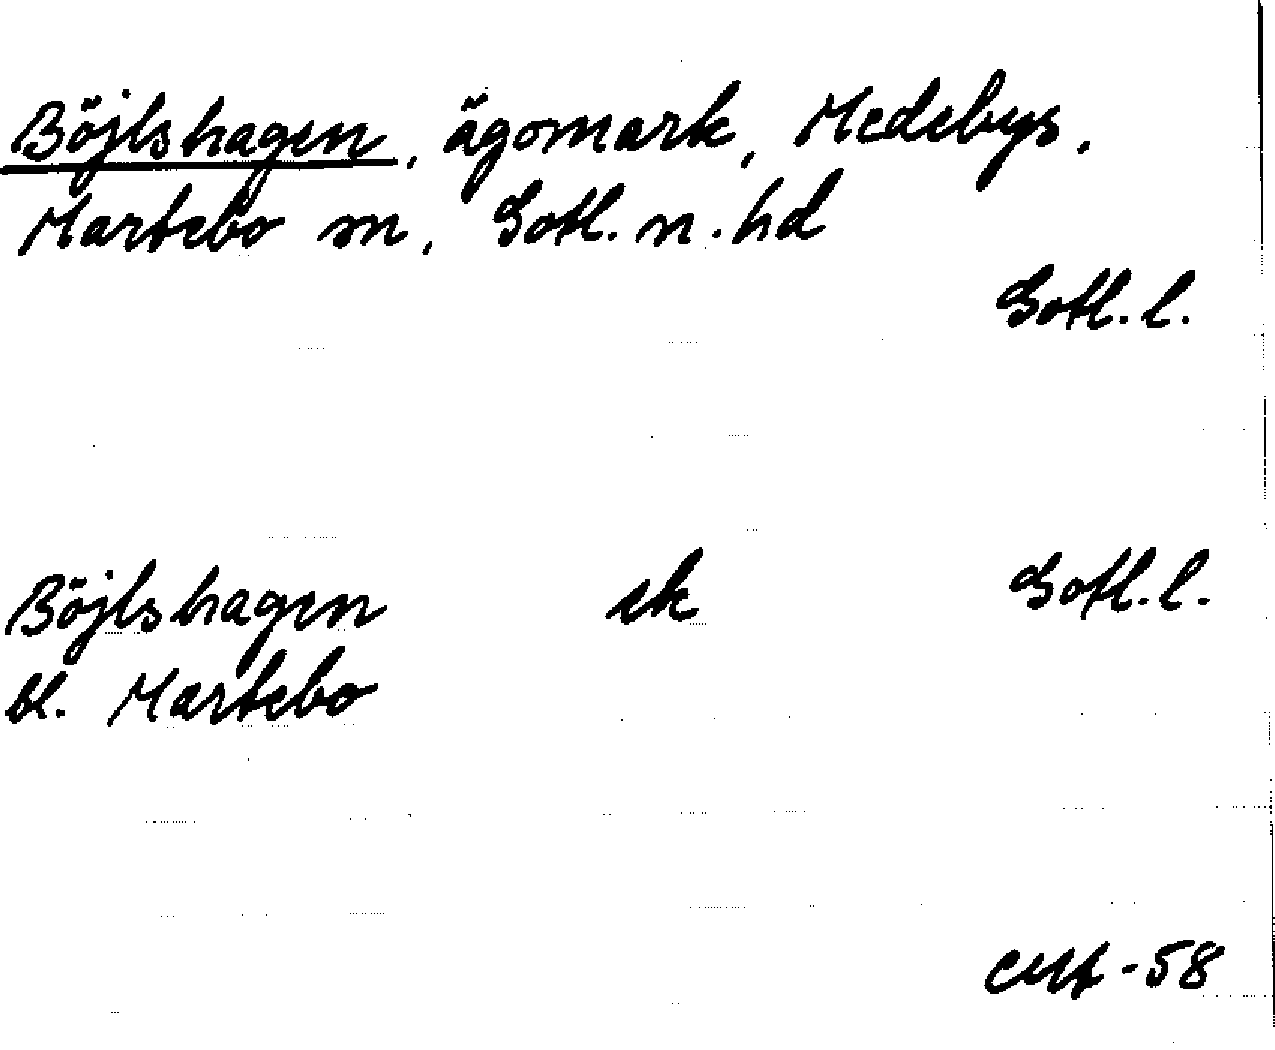 Böjlshagen, ägomark, Medebys.
Martebo sn, Gotl. n. hd
Gotl. l.
Böjlshagen ek Gotl. l.
bl. Martebo
-58